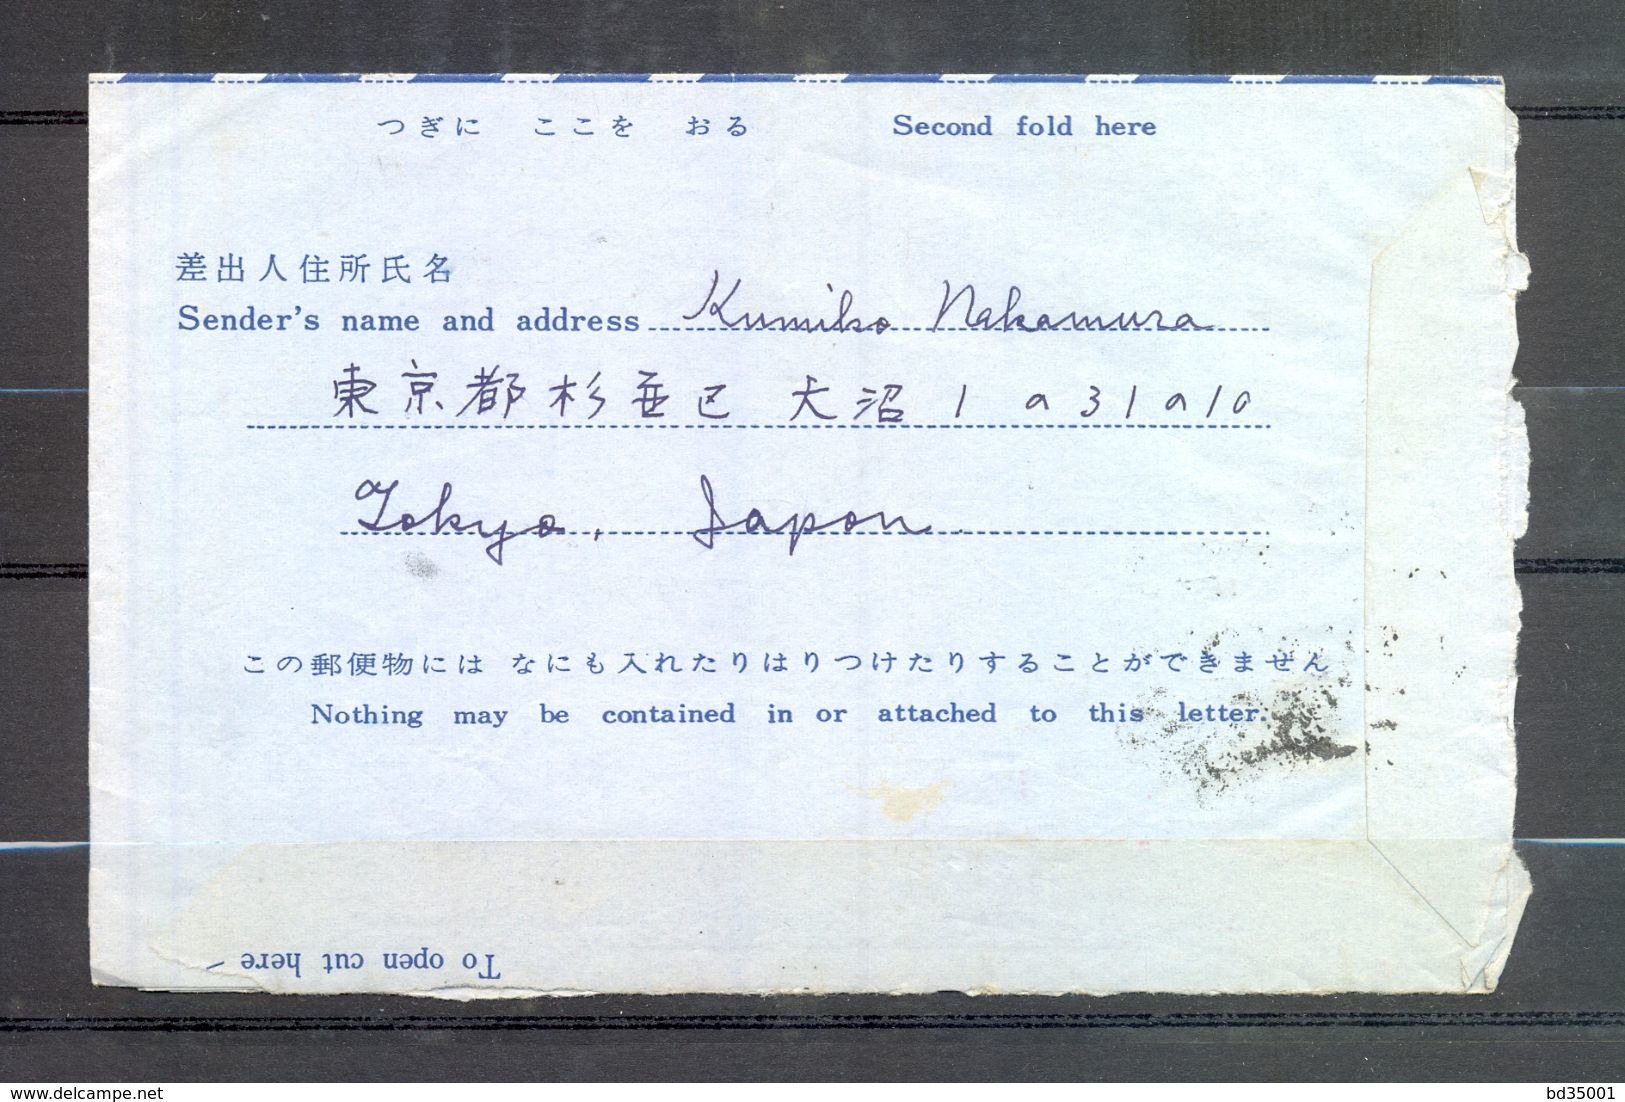 つぎに ここを おる Second fold here
差出人住所氏名
Sender's name and address Kumiko Nakamura
東京都杉並区 大沼 1 a 31 a 10
Tokyo, Japan
この郵便物には なにも入れたりはりつけたりすることができません
Nothing may be contained in or attached to this letter.
To open cut here
delcampe.net
bd35001